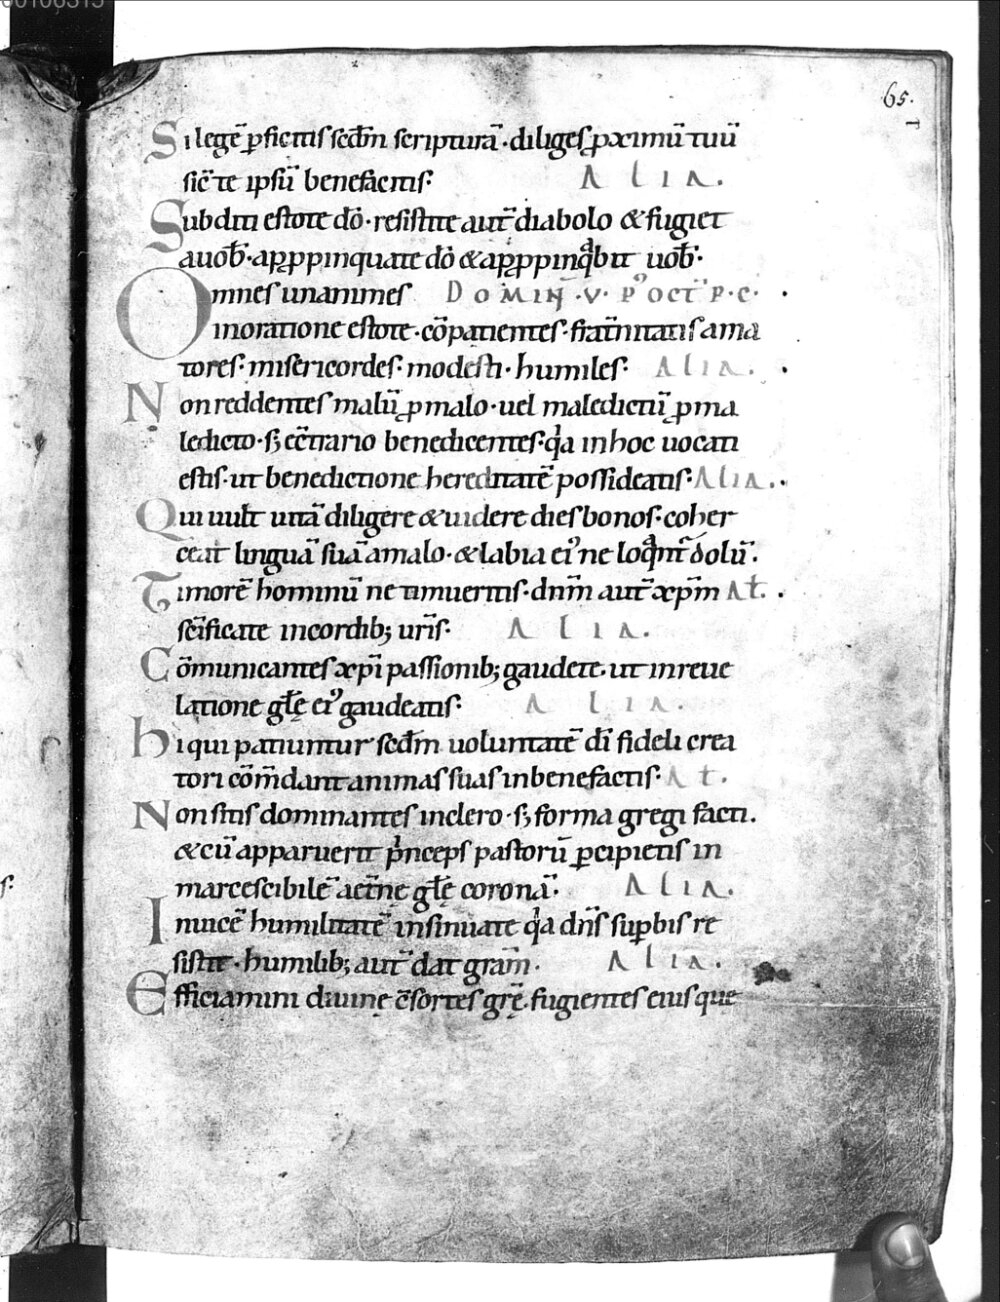 65.
Si legē ꝑficitis scd̄m scripturā · diliges ꝓximū tuū
sic̄ te ipsū benefacitis · ALIA.
Subditi estote dō · resistite aut̄ diabolo & fugiet
a uob̄ · apꝓpinquate dō & apꝓpinqͣbit uob̄ ·
Omnes unanimes DOMIN · V · P' OCT̄ P · E ·
in oratione estote · cōpatientes · frat̄nitatis ama
tores · misericordes · modesti · humiles · ALIA.
Non reddentes malū ꝓ malo · uel maledictū ꝓ ma
ledicto · s; ec̄trario benedicentes · qͣa in hoc uocati
estis · ut benedictione hereditatē possideatis · ALIA.
Qui uult uitā diligere & uidere dies bonos · coher
ceat linguā suā a malo · & labia ei' ne loqͣnt̄ dolū ·
Timorē hominū ne timueritis · dn̄m aut̄ xp̄m At.
sc̄ificate in cordib; ur̄is · ALIA.
Cōmunicantes xp̄i passionib; gaudete · ut in reue
latione gl̄ę ei' gaudeatis · ALIA.
hi qui patiuntur scd̄m uoluntatē dī fideli crea
tori cōm̄dant animas suas in benefactis · At.
Non sitis dominantes in clero · s; forma gregi facti.
& cū apparuerit pͥnceps pastorū ꝑcipietis in
marcescibilē aet̄nę gl̄ę coronā · ALIA.
Inuicē humilitatē insinuate qͣa dn̄s suꝑbis re
sistit · humilib; aut̄ dat gr̄am · ALIA.
Efficiamini diuinę c̄sortes gr̄ę · fugientes eius que